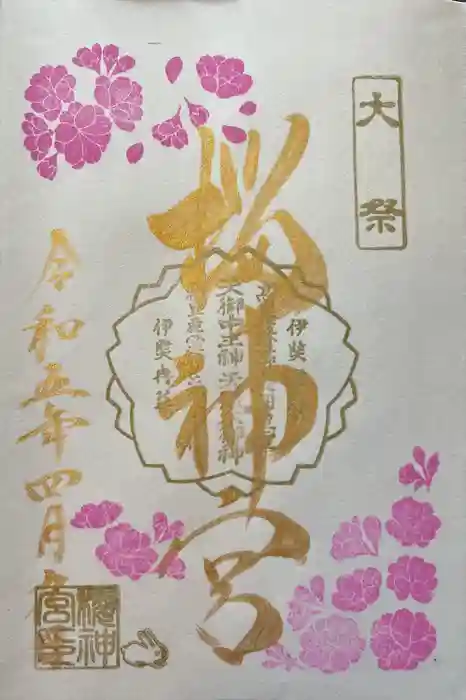 大祭
桜神宮
伊奘
天御中主神
伊奘冉尊
令和五年四月
桜神
宮印